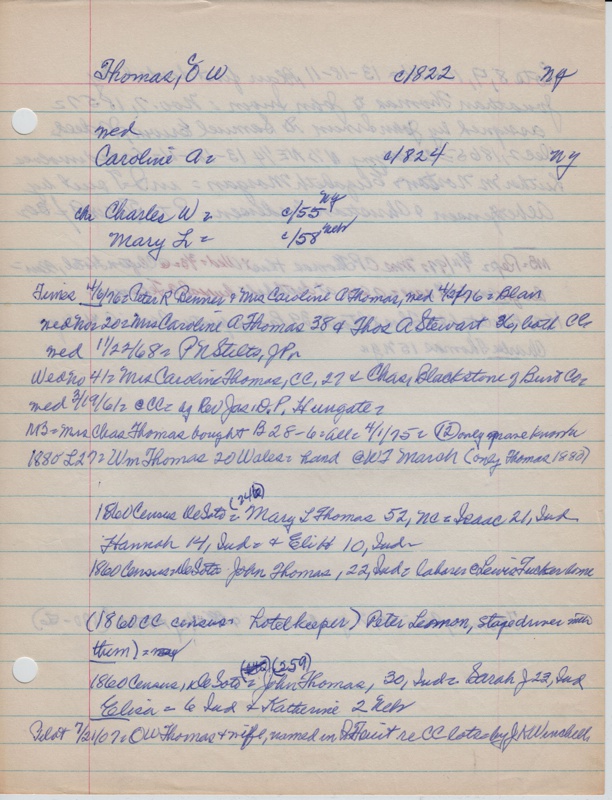 Thomas, O W c/1822 Ny
med
Caroline A = c/1824 Ny
chi Charles W = c/55 Ny
Mary L = c/58 Neb
Times 4/6/76 = Peter R Benner & Mrs Caroline A Thomas, med 4/3/76 = Blair
wed no 20 = Mrs Caroline A Thomas 38 & Thos A Stewart 36, both CC
med 11/22/68 = P N Stilts, JP
Wed No 41 = Mrs Caroline Thomas, CC, 27 & Chas Blackstone of Burt Co =
med 3/19/61 = @ CC = by Rev Jas D, P, Hungate =
MB = Mrs Chas Thomas bought B 28-6 = all = 4/1/75 = (12) only grave known
1880 L27 = Wm Thomas 20 Wales = hand @ WF Marsh (only Thomas 1880)
1860 Census DeSoto = Mary L Thomas 52, NC = Isaac 21, Ind
Hannah 14, Ind = & 10, Ind =
1860 Census = DeSoto = John Thomas, 22, Ind = laborer @ Lewis Tucker home
(1860 CC census = hotelkeeper) Peter Lemon, stage driver with
them) =
1860 Census, DeSoto = (259) John Thomas, 30, Ind = Sarah J 23, Ind
Eliza = 6 Ind & Katherine 2 Neb
Pilot 7/21/07 = OW Thomas & wife, named in suit re CC lots = by J K